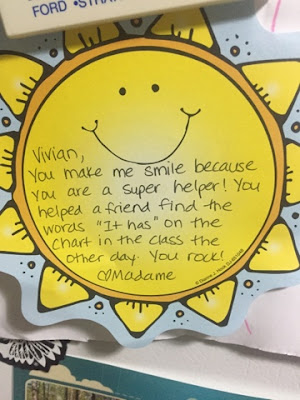 FORD • STRA
Vivian,
You make me smile because
you are a super helper! You
helped a friend find the
words "It has" on the
Chart in the class the
other day. You rock!
♡Madame